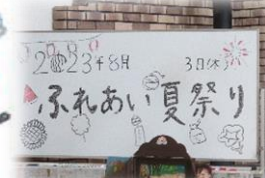 2023年8月 3日(木)
ふれあい夏祭り